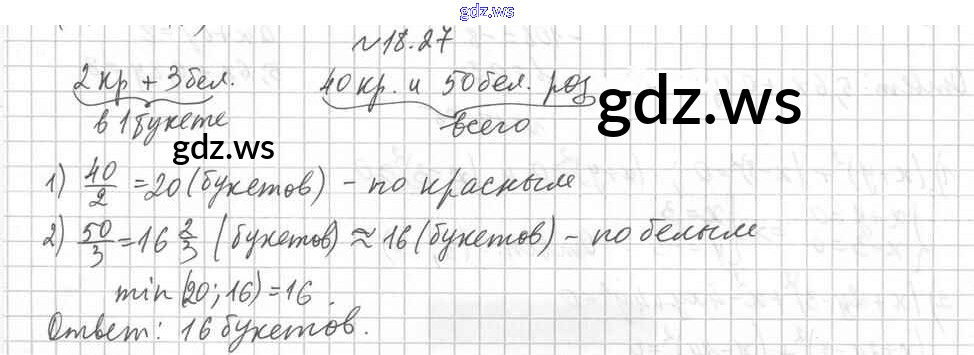 gdz.ws
№18.27
2 кр + 3 бел. 40 кр. и 50 бел. роз
в 1 букете всего
gdz.ws
gdz.ws
1) 40/2 = 20 (букетов) - по красным
2) 50/3 = 16 2/3 (букетов) ≈ 16 (букетов) - по белым
min (20; 16) = 16.
Ответ: 16 букетов.